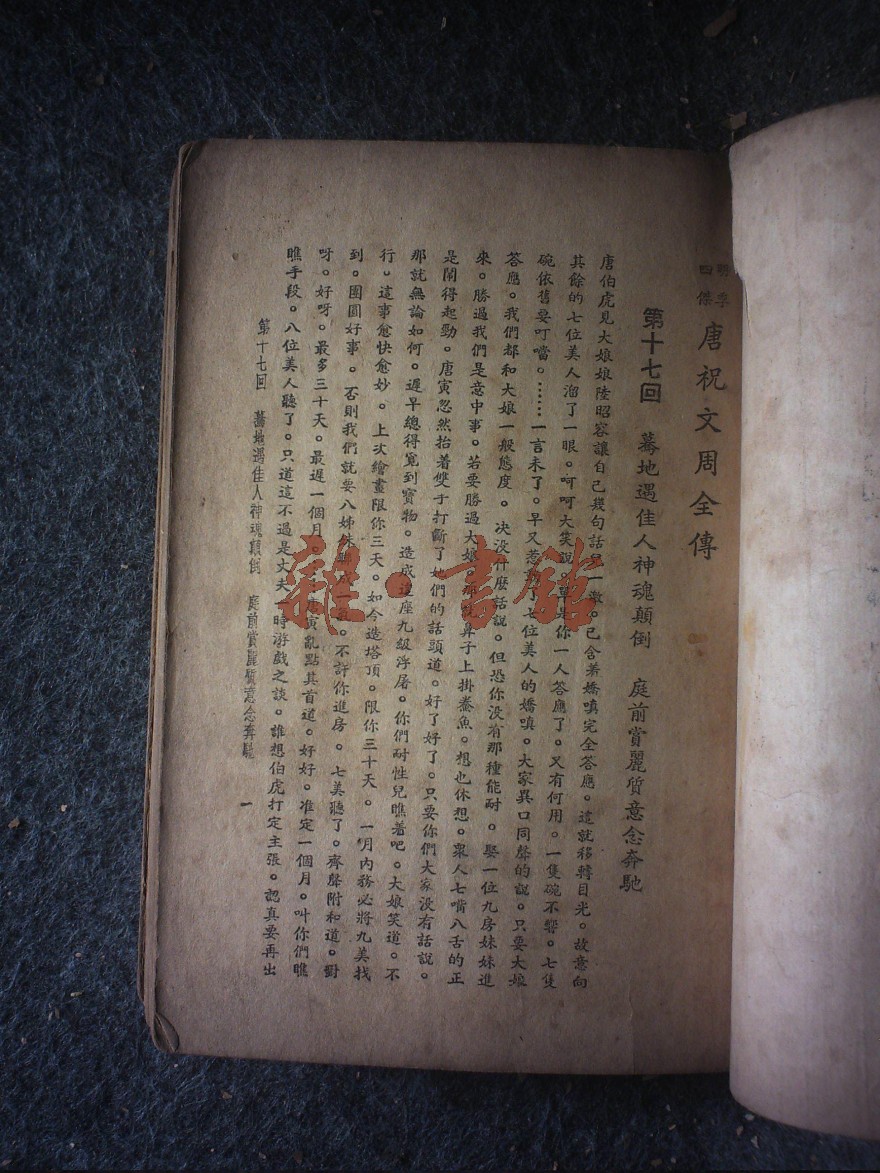 明季四傑 唐祝文周全傳
第十七回 驀地遇佳人神魂顛倒 庭前賞麗質意念奔馳
唐伯虎見大娘娘陸昭容讓自己幾句話 一激。已含着嬌嗔完全答應。這就移轉目光。故意向
其餘的七位美人溜了一眼。呵呵大笑說 單是你一人答應了。又有何用。一隻碗不響。七隻
碗依舊要叮噹。……一言未了。早又惹 七位美人的嬌嗔。大家異口同聲的說。只要大娘
答應。我們都和大娘一般態度。决没什麽話說。但恐你没有那種能耐。娶一位九房妹妹進
來。勝過我們是意中事。若要勝過大娘。那 鼻子上掛鯗魚。想也休想。衆人七嘴八舌的正
是鬧得起勁。唐寅忽然抬着雙手打斷了她們的話頭道。好了好了。只要你們大家没有話說。
那就無論如何。遲早總得覓到寶物。造成這座九級浮屠。你們耐性兒瞧着吧。大娘笑道。不
行。這事愈快愈妙。上次繪畫限你三天。如今造塔頂。限你三十天。一月内務必將九美找
到。團圓好事。否則我們就要八姊妹 成一 。不許你進房。七美聽了。齊聲附和道。對
呀。好呀。最多三十天。最遲一個月 唐寅亂點其首道。好好。准定一個月。叫你們瞧
瞧手段。八位美人聽了。只道這不過是丈夫 時游戲之談。誰想伯虎打定主張。認真要再出
第十七回 驀地遇佳人神魂顛倒 庭前賞麗質意念奔馳 一
雜·書館